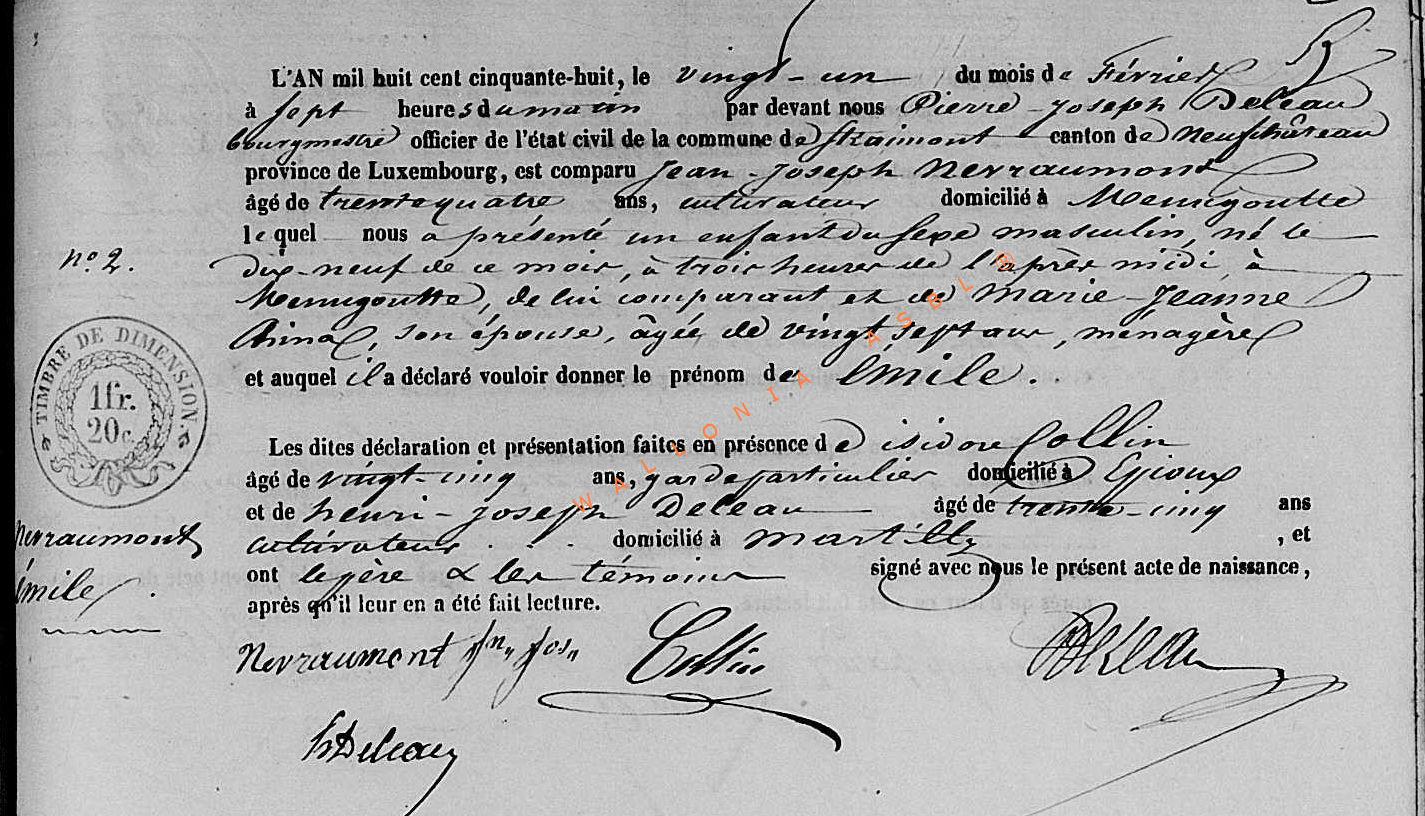 L'AN mil huit cent cinquante-huit, le vingt-un du mois de Février
à sept heures du matin par devant nous Pierre-Joseph Deleau
bourgmestre officier de l'état civil de la commune de Straimont canton de Neufchâteau
province de Luxembourg, est comparu Jean-Joseph Nevraumont
âgé de trente quatre ans, cultivateur domicilié à Menugoutte
lequel nous a présenté un enfant du sexe masculin, né le
n° 2.
dix-neuf de ce mois, à trois heures de l'après midi, à
Menugoutte, de lui comparant et de Marie-Jeanne
son épouse, âgée de vingt sept ans, ménagère
et auquel il a déclaré vouloir donner le prénom de Emile.
TIMBRE DE DIMENSION.
1fr.
20c.
Les dites déclaration et présentation faites en présence de isidore Collin
âgé de vingt-cinq ans, garde particulier domicilié à Epioux
et de henri-Joseph Deleau âgé de trente-cinq ans
cultivateur domicilié à Martilly, et
Nevraumont
émile
ont le père & les témoins signé avec nous le présent acte de naissance,
après qu'il leur en a été fait lecture.
Nevraumont Jn. Jos. Collin Deleau
h Deleau
WALLONIA ASBL ©